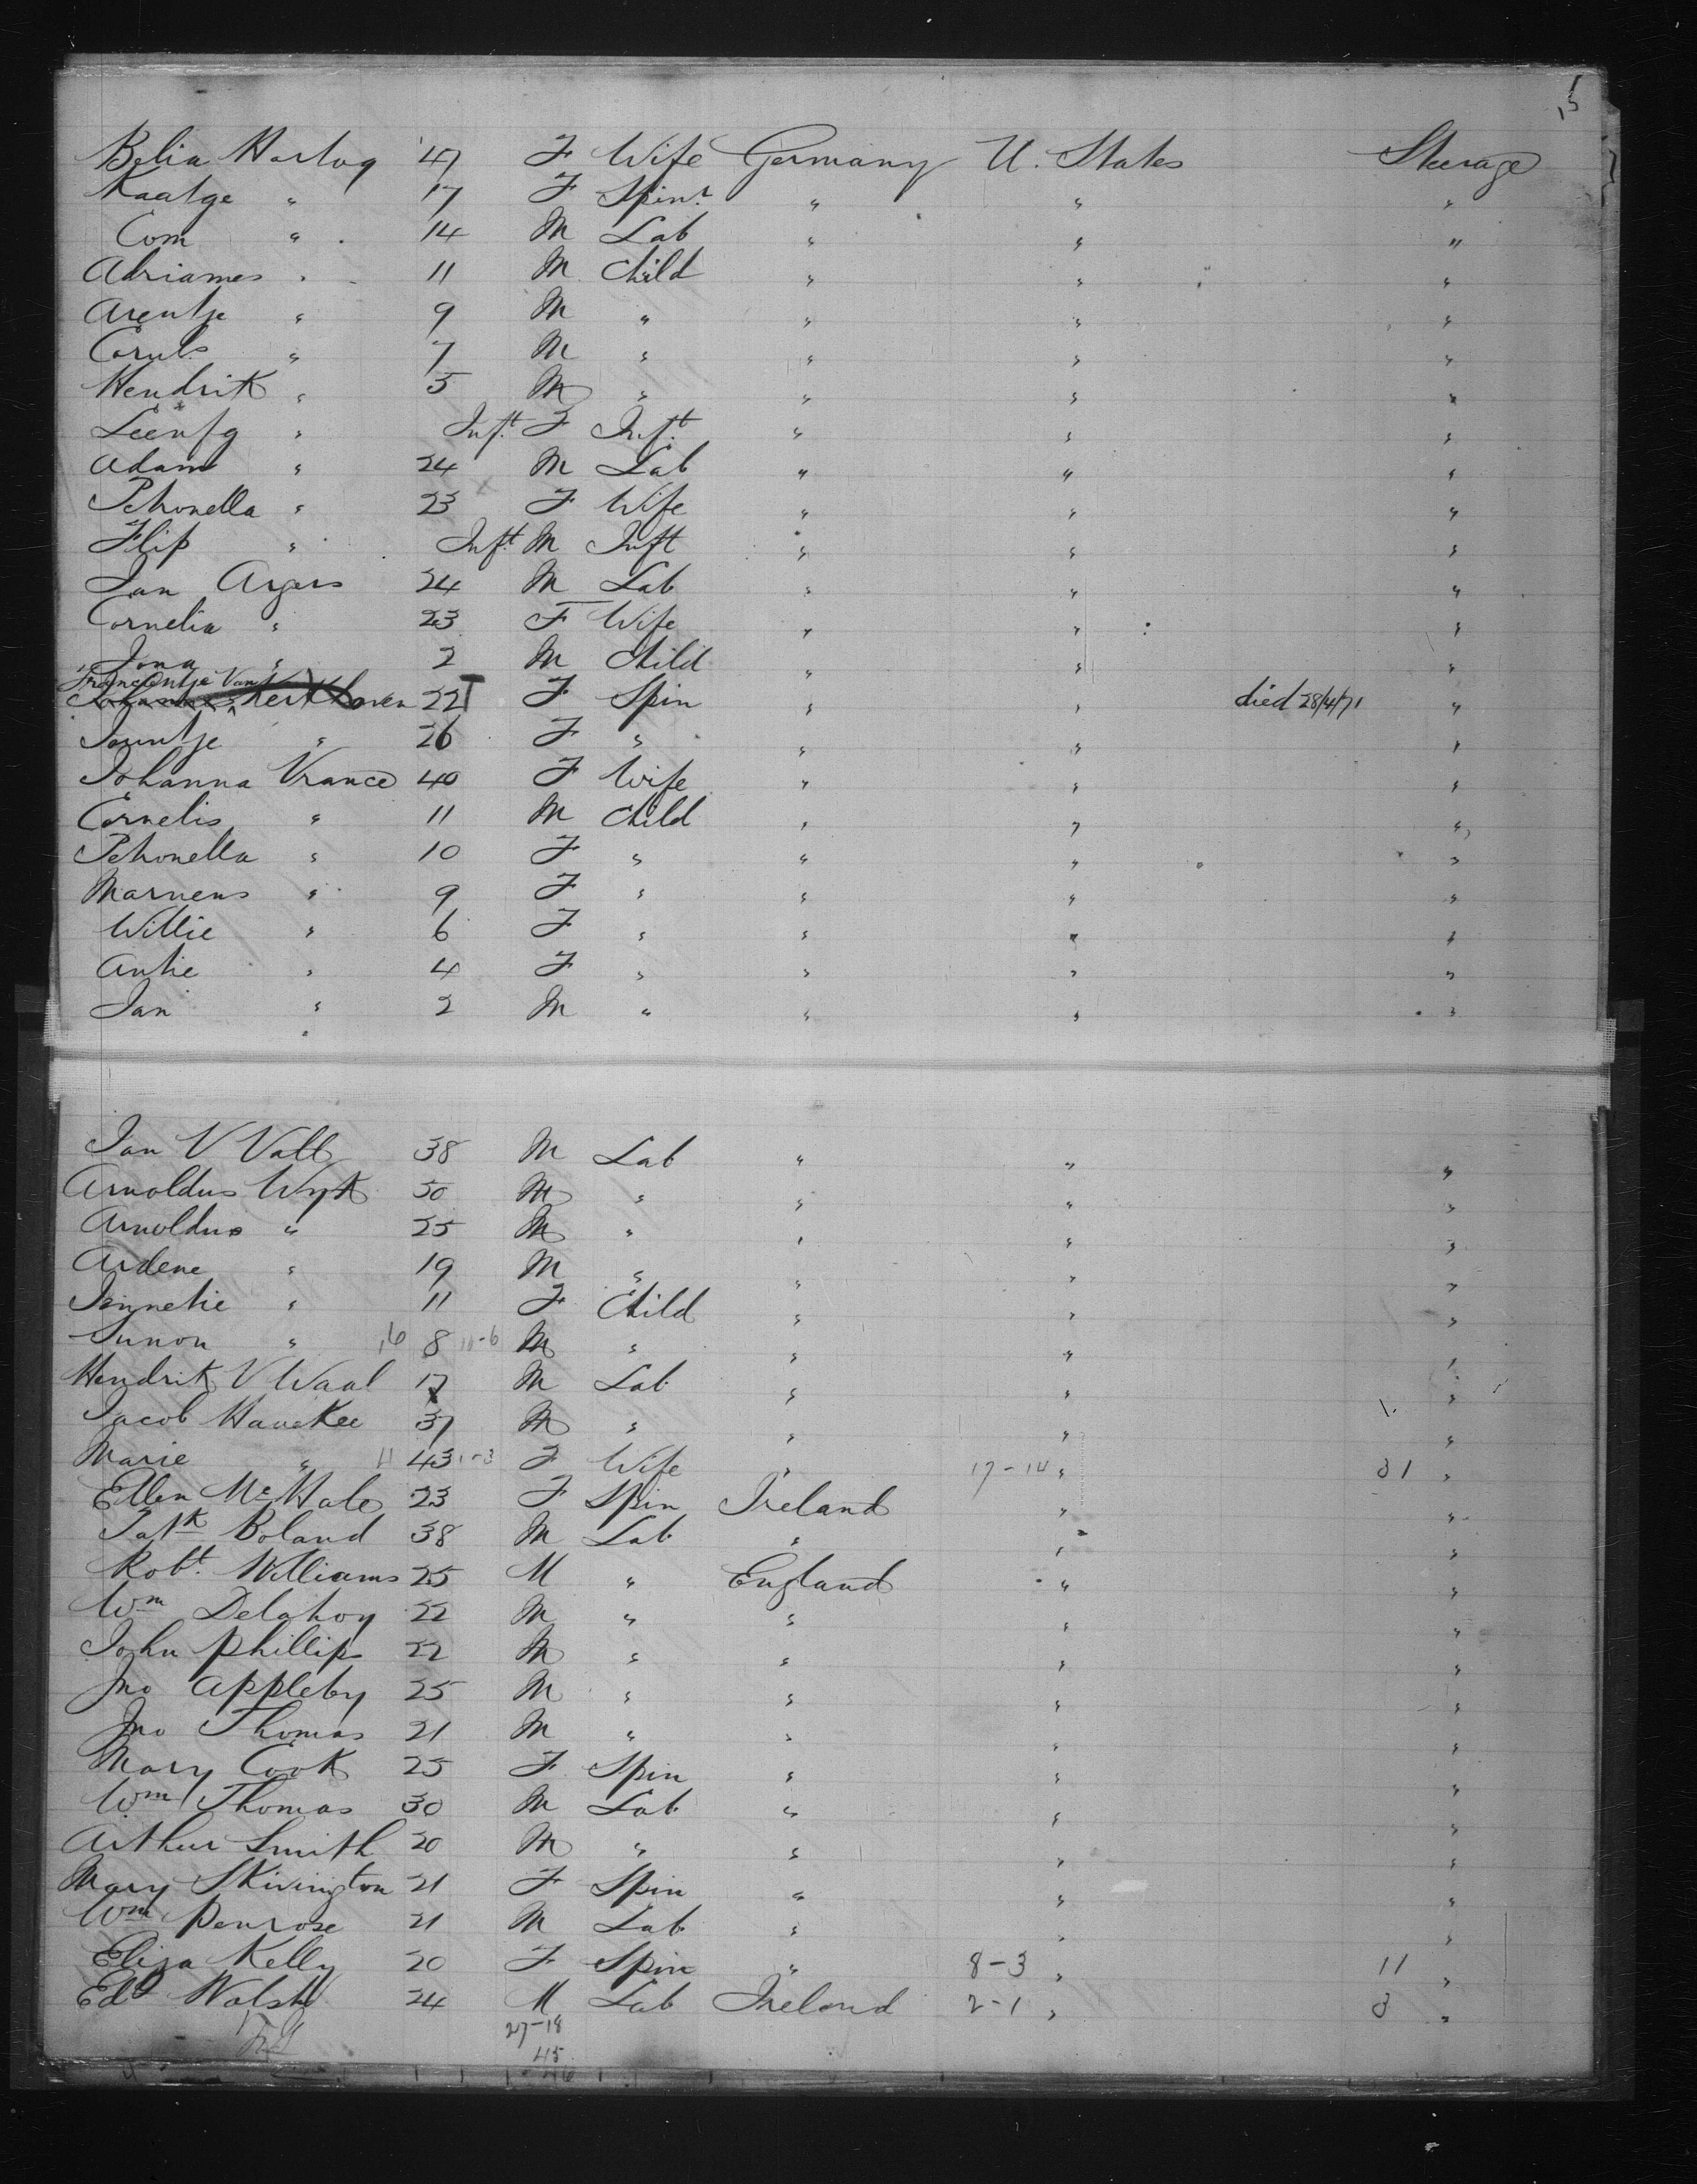 15
Belia Hartog 47 F Wife Germany U. States Steerage
Kaatge " 17 F Spinr " " "
Corn " 14 M Lab " " "
Adriames " 11 M Child " " "
Arentje " 9 M " " " "
Cornls " 7 M " " " "
Hendrik " 5 M " " " "
Leentg " Inft F Inft " " "
Adam " 24 M Lab " " "
Petronella " 23 F Wife " " "
Flip " Inft M Inft " " "
Jan Argers 24 M Lab " " "
Cornelia " 23 F Wife " " "
Jona " 2 M Child " " "
Van
Kerkhoven 22 F Spin " " died 28/4/71 "
Jountje " 26 F " " " "
Johanna Vrance 40 F Wife " " "
Cornelis " 11 M Child " " "
Petronella " 10 F " " " "
Marnens " 9 F " " " "
Willie " 6 F " " " "
Antie " 4 F " " " "
Jan " 2 M " " " "
Jan V Vall 38 M Lab " " "
Arnoldus Wyk 50 M " " " "
Arnoldus " 25 M " " " "
Ardene " 19 M " " " "
Jennetie " 11 F Child " " "
Sunon " 16 8 10-6 M " " " "
Hendrik V Waal 17 M Lab " " "
Jacob Hauekee 37 M " " " "
Marie " 11 43 1-3 F Wife " 17-14 " 31 "
Ellen McHale 23 F Spin Ireland " "
Patk Boland 38 M Lab " " "
Robt. Williams 25 M " England " "
Wm Delahoy 22 M " " " "
John Phillips 22 M " " " "
Jno Appleby 25 M " " " "
Jno Thomas 21 M " " " "
Mary Cook 25 F Spin " " "
Wm Thomas 30 M Lab " " "
Arthur Smith 20 M " " " "
Mary Skivington 21 F Spin " " "
Wm Penrose 21 M Lab " " "
Eliza Kelly 20 F Spin " 8-3 " 11 "
Edd Walsh 24 M Lab Ireland 2-1 " 3 "
27-18
45
46